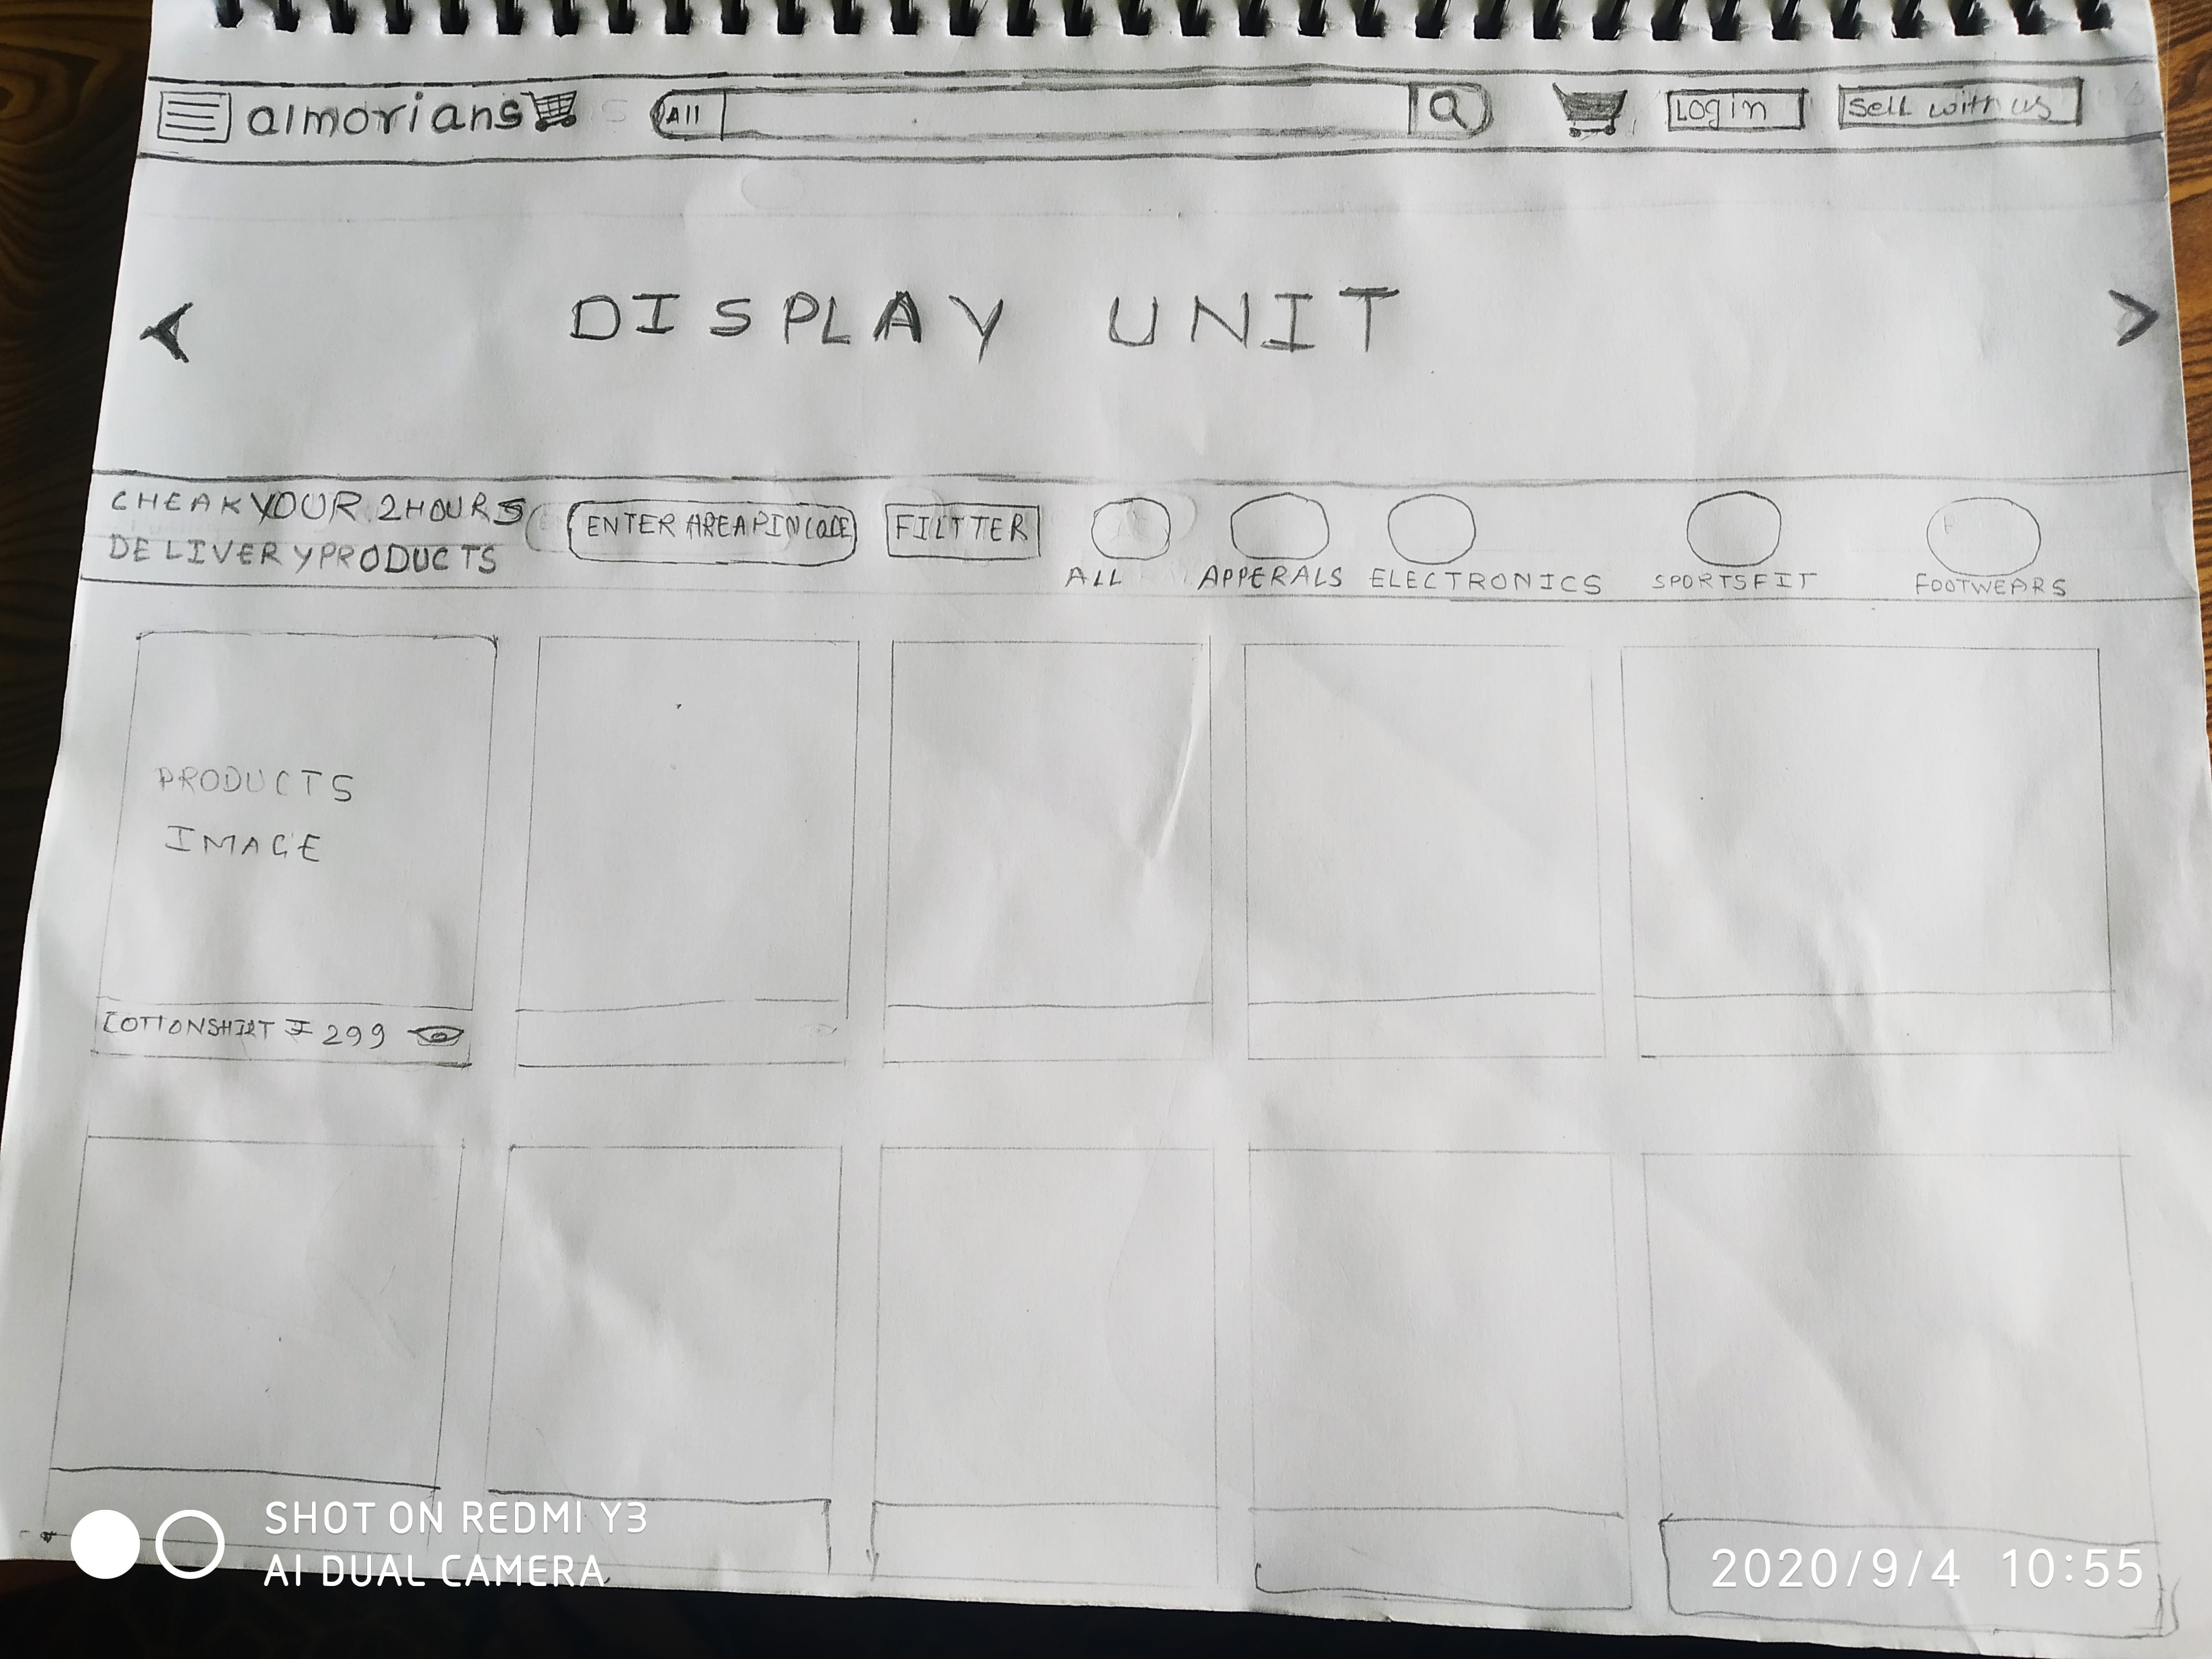 almorians
All
Login
Sell with us
DISPLAY UNIT
CHEAK YOUR 2 HOURS
DELIVERY PRODUCTS
ENTER AREA PIN CODE
FILTTER
ALL
APPERALS
ELECTRONICS
SPORTSFIT
FOOTWEARS
PRODUCTS
IMAGE
COTTONSHIRT ₹ 299
SHOT ON REDMI Y3
AI DUAL CAMERA
2020/9/4 10:55